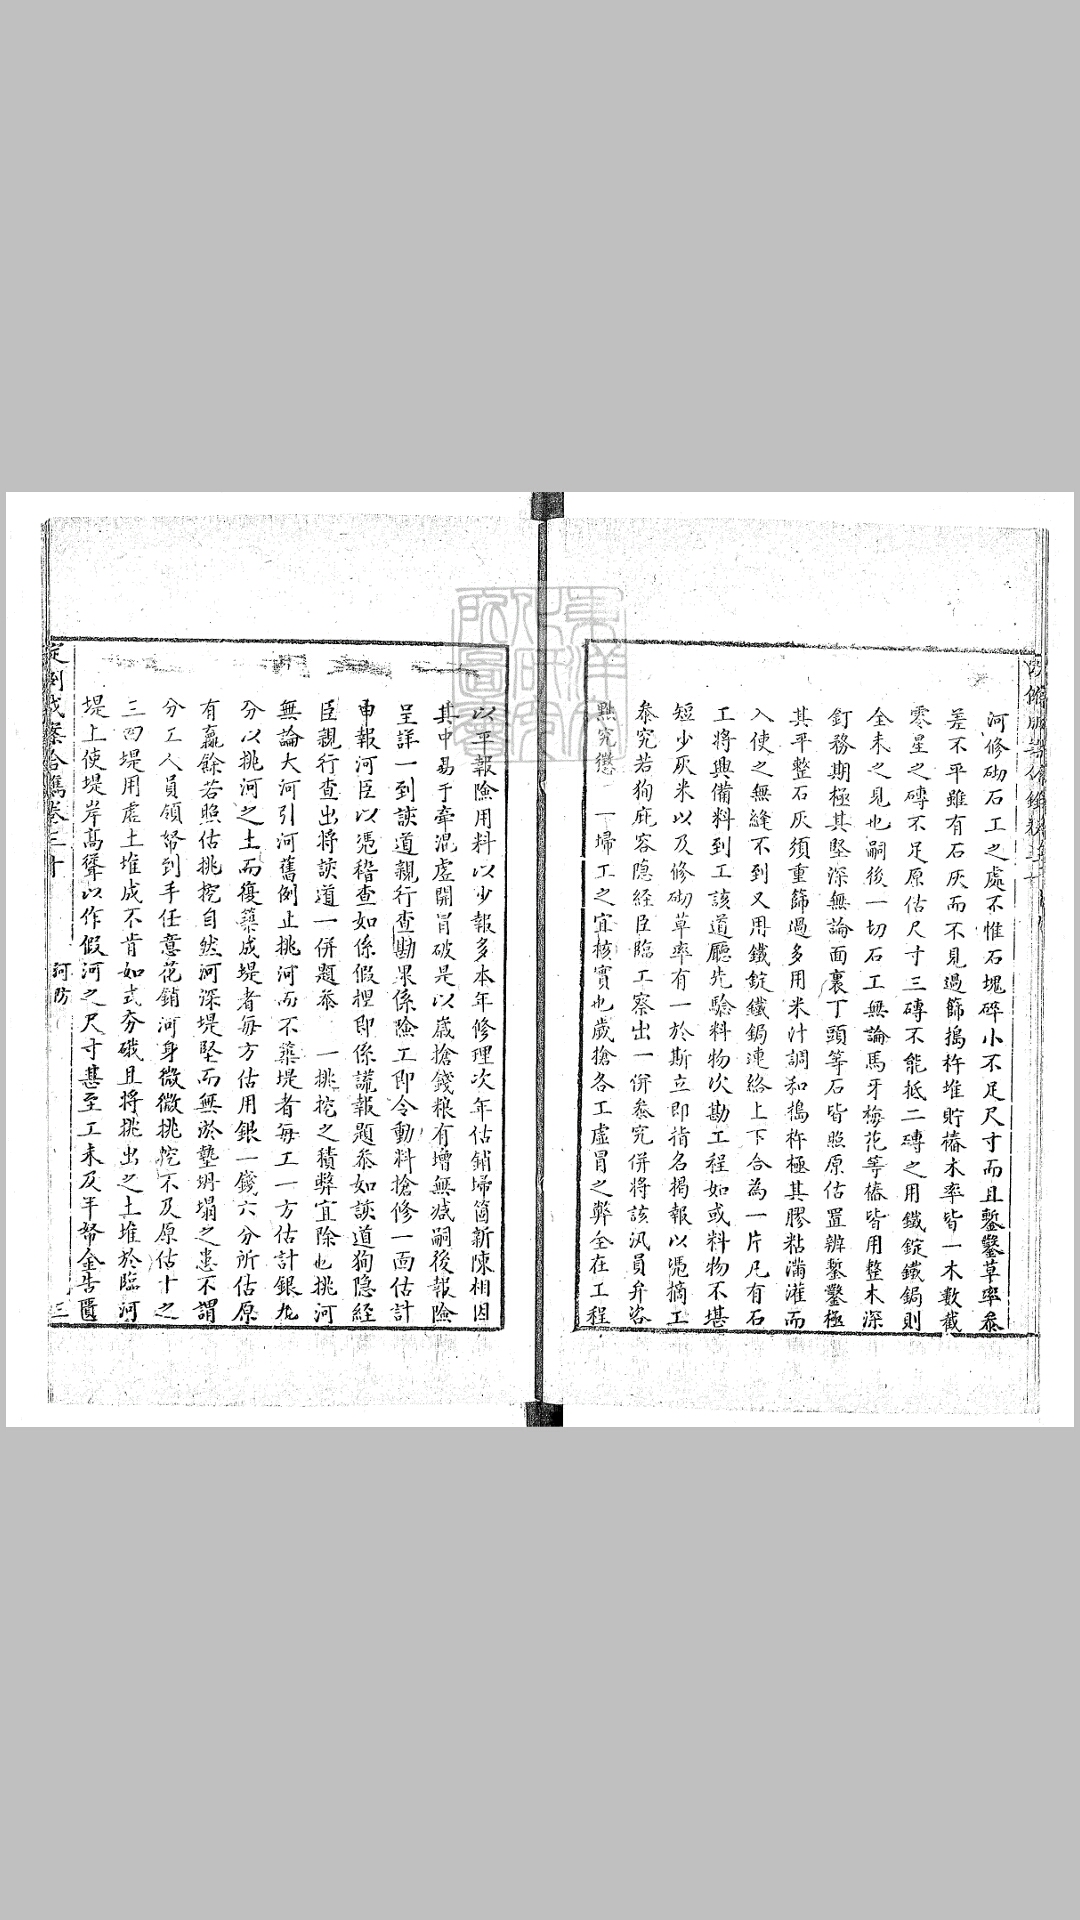 河修砌石工之處不惟石塊碎小不足尺寸而且鏨鑿草率叅
差不平雖有石灰而不見過篩搗杵堆貯樁木率皆一木數截
零星之磚不足原估尺寸三磚不能抵二磚之用鐵錠鐵鋦則
全未之見也嗣後一切石工無論馬牙梅花等樁皆用整木深
釘務期極其堅深無論面裏丁頭等石皆照原估置辦鏨鑿極
其平整石灰須重篩過多用米汁調和搗杵極其膠粘滿灌而
入使之無縫不到又用鐵錠鐵鋦連絡上下合為一片凡有石
工將興備料到工該道廳先驗料物次勘工程如或料物不堪
短少灰米以及修砌草率有一於斯立即指名揭報以憑摘工
叅究若狥庇容隱經臣臨工察出一併叅究併將該汛員弁咨
㸃究懲　一埽工之宜核實也歲搶各工虛冒之弊全在工程
以平報險用料以少報多本年修理次年估銷埽箇新陳相因
其中易于牽混虛開冒破是以嵗搶錢粮有增無減嗣後報險
呈詳一到該道親行查勘果係險工即令動料搶修一面估計
申報河臣以憑稽查如係假捏即係謊報題叅如該道狥隱經
臣親行查出將該道一併題叅　一挑挖之積弊宜除也挑河
無論大河引河舊例止挑河而不築堤者每工一方估計銀九
分以挑河之土而復築成堤者每方估用銀一錢六分所估原
有贏餘若照估挑挖自然河深堤堅而無淤墊坍塌之患不謂
分工人員領帑到手任意花銷河身微微挑挖不及原估十之
三四堤用虛土堆成不肯如式夯硪且將挑出之土堆於臨河
堤上使堤岸高聳以作假河之尺寸甚至工未及半帑金告匱
定例成案合鐫卷二十　河防　三